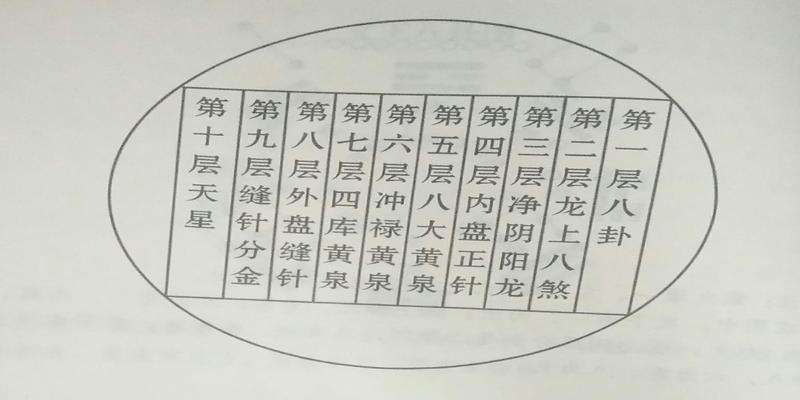 第一层八卦
第二层龙上八煞
第三层净阴阳龙
第四层内盘正针
第五层八大黄泉
第六层冲禄黄泉
第七层四库黄泉
第八层外盘缝针
第九层缝针分金
第十层天星